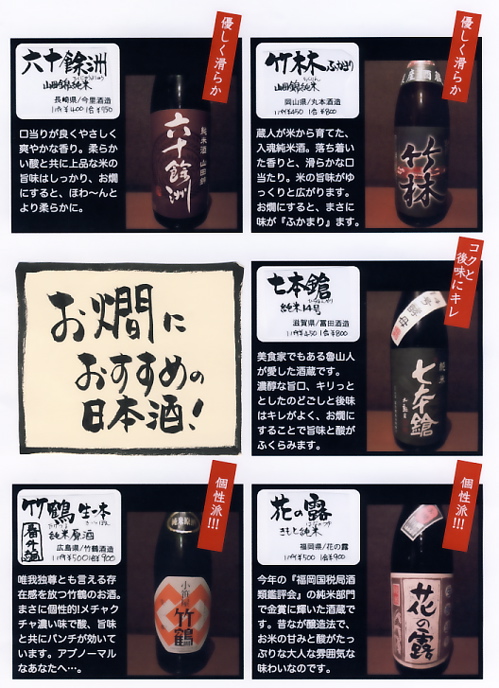 優しく滑らか
六十餘洲
山田錦純米
長崎県/今里酒造
1/2合¥400 1合¥750
口当りが良くやさしく
爽やかな香り。柔らか
い酸と共に上品な米の
旨味はしっかり、お燗
にすると、ほわ〜んと
より柔らかに。
六十餘洲
純米酒 山田錦
優しく滑らか
竹林 ふかまり
山田錦純米
岡山県/丸本酒造
1/2合¥450 1合¥800
蔵人が米から育てた、
入魂純米酒。落ち着い
た香りと、滑らかな口
当たり。米の旨味がゆ
っくりと広がります。
お燗にすると、まさに
味が『ふかまり』ます。
竹林
お燗に
おすすめの
日本酒!
コクと
後味にキレ
七本鎗
純米14号
滋賀県/冨田酒造
1/2合¥450 1合¥800
美食家でもある魯山人
が愛した酒蔵です。
濃醇な旨口、キリっと
としたのどごしと後味
はキレがよく、お燗に
することで旨味と酸が
ふくらみます。
純米
七本鎗
竹鶴 生一本
番外編
純米原酒
広島県/竹鶴酒造
1/2合¥500 1合¥900
唯我独尊とも言える存
在感を放つ竹鶴のお酒。
まさに個性的!メチャク
チャ濃い味で酸、旨味
と共にパンチが効いて
います。アブノーマル
なあなたへ…。
小笹屋
竹鶴
個性派!!!
花の露
きもと純米
福岡県/花の露
1/2合¥500 1合¥900
今年の『福岡国税局酒
類鑑評会』の純米部門
で金賞に輝いた酒蔵で
す。昔なが醸造法で、
お米の甘みと酸がたっ
ぷりな大人な雰囲気な
味わいなのです。
花の露
個性派!!!